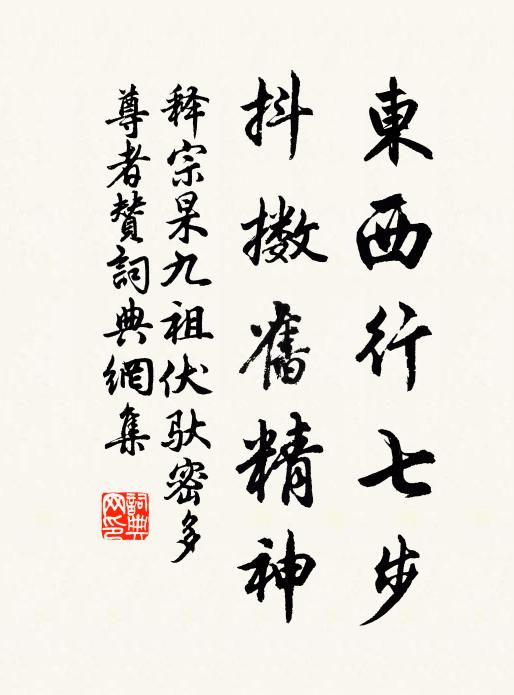 東西行七步
抖擻舊精神
释宗杲九祖伏驮密多
尊者贊詞典網集
詞典
网印